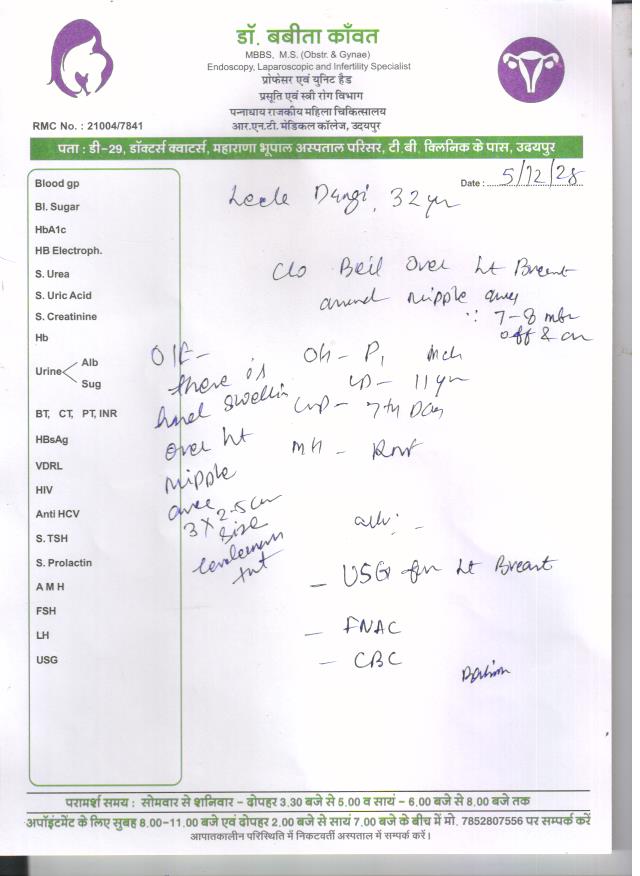 डॉ. बबीता काँवत
MBBS, M.S. (Obstr. & Gynae)
Endoscopy, Laparoscopic and Infertility Specialist
प्रोफेसर एवं युनिट हैड
प्रसूति एवं स्त्री रोग विभाग
पन्नाधाय राजकीय महिला चिकित्सालय
RMC No. : 21004/7841
आर.एन.टी. मेडिकल कॉलेज, उदयपुर
पता : डी-29, डॉक्टर्स क्वाटर्स, महाराणा भूपाल अस्पताल परिसर, टी.बी. क्लिनिक के पास, उदयपुर
Date : 5/12/28
Dangi, 32 yr
Blood gp
Bl. Sugar
HbA1c
HB Electroph.
S. Urea
S. Uric Acid
S. Creatinine
Hb
Urine
Alb
Sug
BT, CT, PT, INR
HBsAg
VDRL
HIV
Anti HCV
S. TSH
S. Prolactin
A M H
FSH
LH
USG
C/o Boil Over Lt Breast
around nipple area
7-8 mth
off & on
O/E-
there is
hard swelling
over Lt
nipple
area
3 X 2.5 cm
size
OH - P1
LD - 11 yr
LMP - 7th Day
MH -
adv: -
- USG for Lt Breast
- FNAC
- CBC
परामर्श समय : सोमवार से शनिवार - दोपहर 3.30 बजे से 5.00 व सायं - 6.00 बजे से 8.00 बजे तक
अपॉइंटमेंट के लिए सुबह 8.00-11.00 बजे एवं दोपहर 2.00 बजे से सायं 7.00 बजे के बीच में मो. 7852807556 पर सम्पर्क करें
आपातकालीन परिस्थिति में निकटवर्ती अस्पताल में सम्पर्क करें।